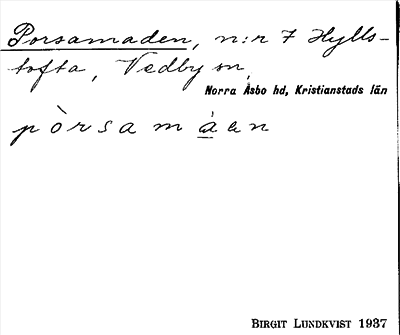 Porsamaden, n:r 7 Hylls-
tofta, Vedby sn,
Norra Åsbo hd, Kristianstads län
pòrsamáən
BIRGIT LUNDKVIST 1937